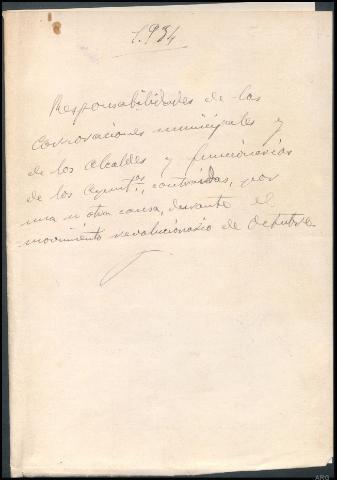 1.934
Responsabilidades de las
Corporaciones municipales y
de los alcaldes y funcionarios
de los Ayuntos, contraidas, por
una u otra causa, durante el
movimiento revolucionario de Octubre
ARG